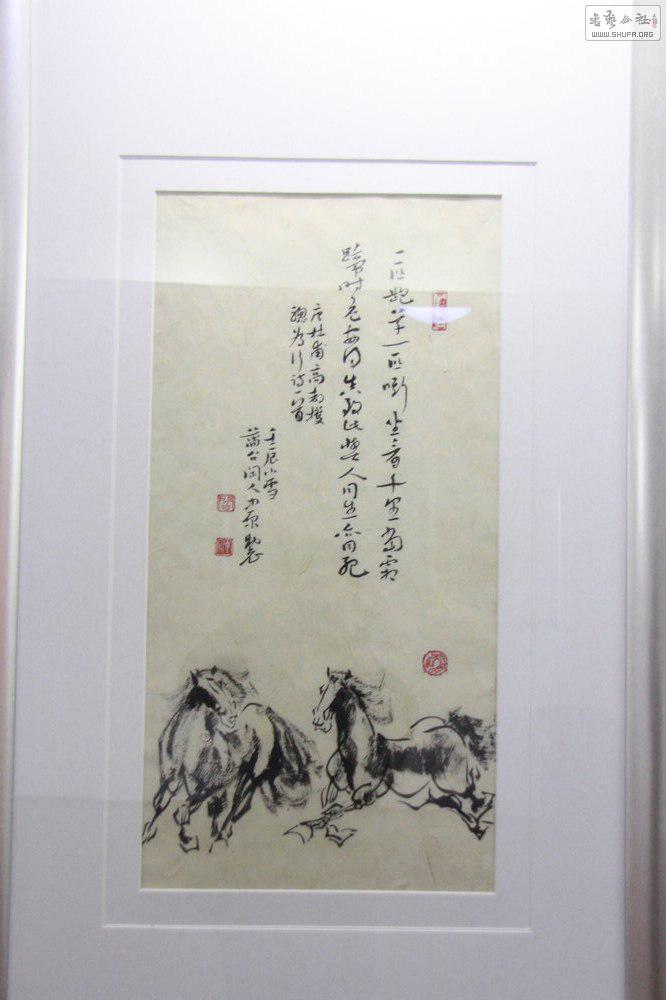 书艺公社
WWW.SHUFA.ORG
一匹齕草一匹嘶坐看千里當霜
蹄時危安得真致此與人同生亦同死
唐杜甫高都護
驄马行诗一首
壬辰小雪